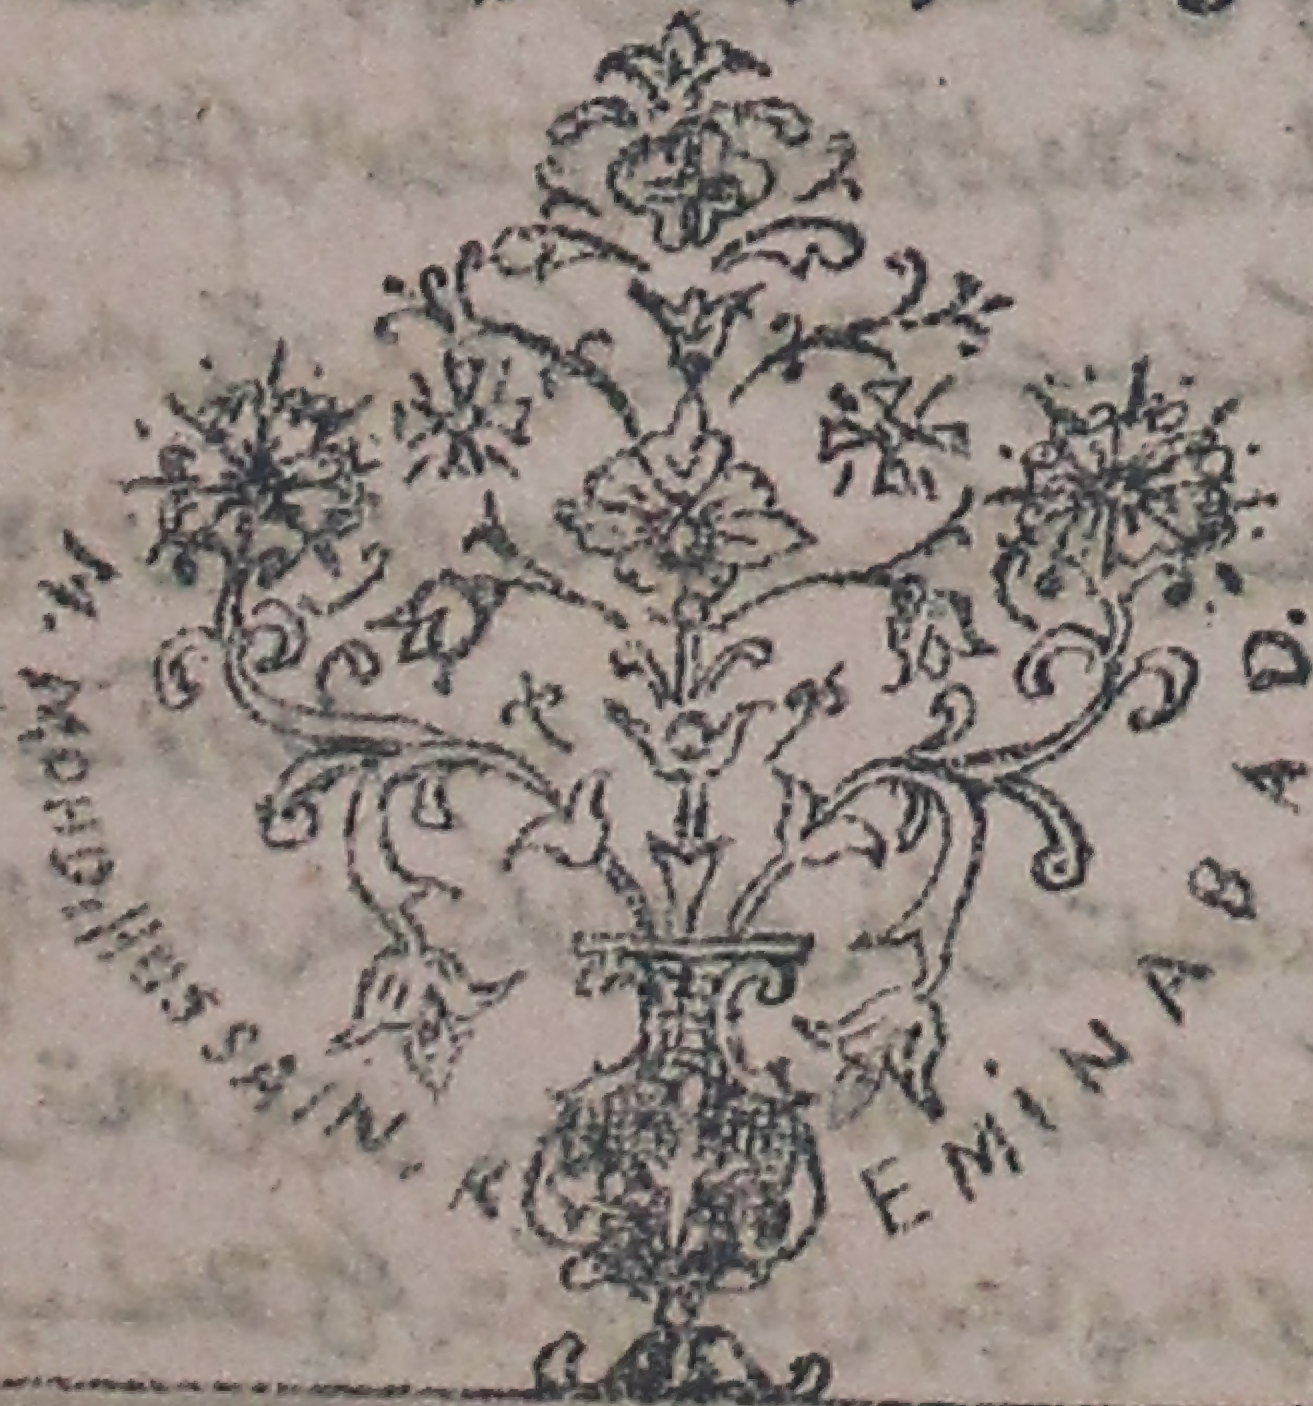 M. MOHD HUSSAIN. K
EMINABAD.